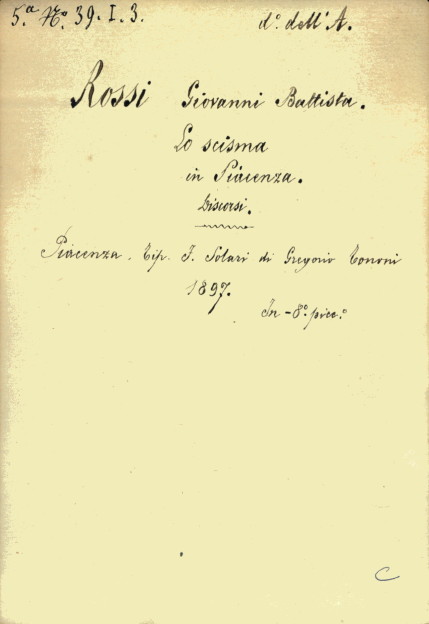 5.ª Nº. 39. I. 3. dº. dell' A.
Rossi Giovanni Battista.
Lo scisma
in Piacenza.
Discorsi.
Piacenza. Tip. F. Solari di Gregorio Tononi
1897.
In - 8º. picc.º
C